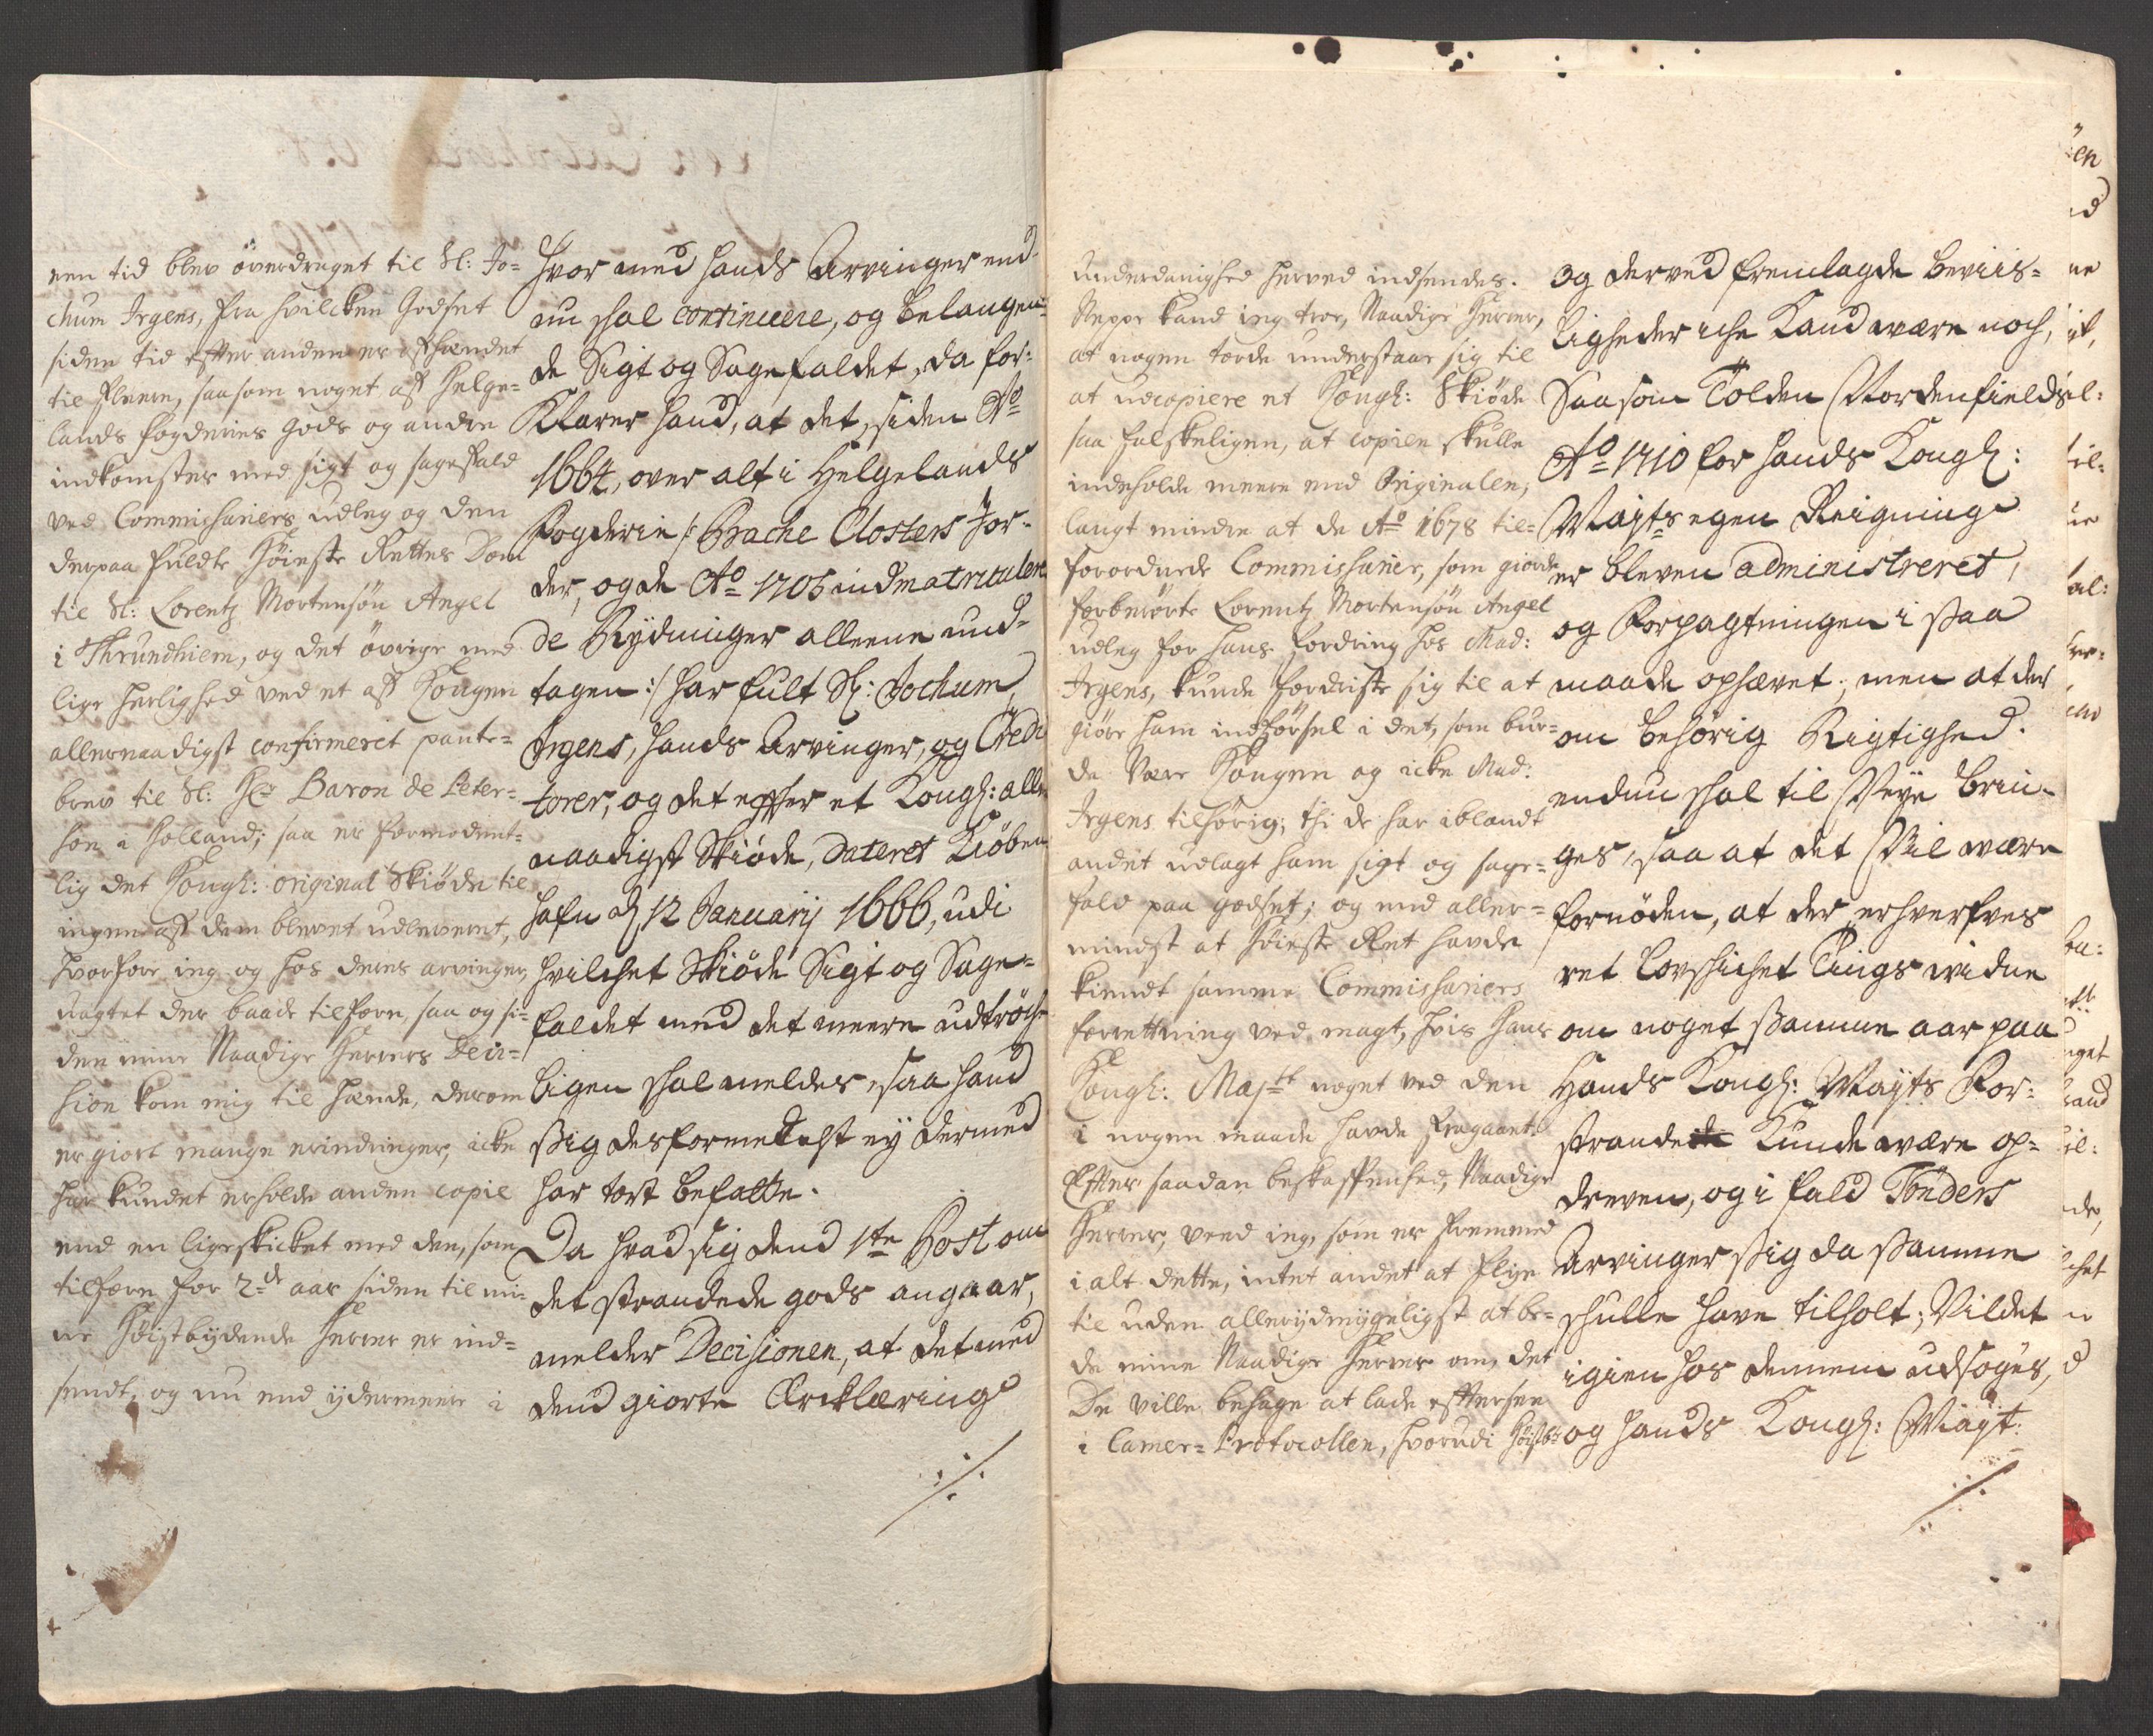 een tid blev överdraget til Sl: Jo=
chum Irgens, fra hvilcken Godset
siden tid efter anden er afhændet
til fleere, saasom noget af Helge=
lands fogderies Gods og andre
indkomster med sigt og sagefald
ved Commissariers udleg og den
derpaa fuldte Höieste Rettes Dom
til Sl: Lorentz Mortensön Angel
i Thrundhiem, og det övrige med
lige herlighed ved et af Kongen
allernaadigst confirmeret pante=
brev til Sl: Hr Baron de Peter=
son i Holland; saa er formodent=
lig det Kongl: original Skiöde til
ingen af dem blevet udleveret,
hvorfore ieg og hos deres arvinger,
uagtet der baade tilforn, saa og si=
den mine Naadige Herrers Deci=
sion kom mig til hænde, derom
er giort mange erindringer, icke
har kundet erholde anden copie
end en ligeskicket med den, som
tilforn for 2de aar siden til mi=
ne Höistbydende Herrer er ind=
sendt, og nu end ydermeere i
Hvor med hands Arvinger end=
nu skal continuere, og belangen=
de Sigt og Sagefaldet, da for=
Klarer hand, at det, siden Ao
1664, over alt i Helgelands
Fogderie /: Rache Closters Jor=
der, og de Ao 1705 indmatriculere
de Rydninger alleene und=
tagen :/ har fult Sl: Jochum
Irgens, hands Arvinger, og Credi
torer, og det efter et Kongl: aller
naadigst Skiöde, dateret Kiöben
hafn d 12 Januarij 1666, udi
hvilchet Skiöde Sigt og Sage=
faldet med det meere udtröche
ligen skal meldes, saa hand
sig desformedelst ey dermed
har tort befatte.
Da hvad sig dend 1te Post om
det strandede gods angaar,
melder Decisionen, at det med
dend giorte Ercklæring
./.
underdanighed herved indsendes.
Neppe kand ieg troe, Naadige Herrer,
at nogen torde understaae sig til
at udcopiere et Kongl: Skiöde
saa falskeligen, at copien skulle
indeholde meere end Originalen,
langt mindre at de Ao 1678 til=
forordnede Commissarier, som giorde
forberörte Lorentz Mortensön Angel
udleg for hans fordring hos Mad:
Irgens, kunde fordriste sig til at
giöre ham indförsel i det, som bur=
de være Kongen og icke Mad:
Irgens tilhörig; thi de har iblandt
andet udlagt ham sigt og sage=
fald paa godset; og end aller=
mindst at Höieste Ret havde
kiendt samme Commissariers
forrettning ved magt, hvis Hans
Kongl: Majtt noget ved den
i nogen maade havde fragaaet.
Efter saadan beskaffenhed, Naadige
Herrer, veed ieg, som er fremmed
i alt dette, intet andet at flye
til uden allerydmygeligst at be=
de mine Naadige Herrer om, det
De ville behage at lade eftersee
i Camer=Protocollen, hvorudi
og derved fremlagde beviis=
ligheder iche Kand være noch,
Saasom Tolden Nordenfields
Ao 1710 for hands Kongl:
Mayts egen Reigning
er bleven administreret,
og Forpagtningen i saa
maade ophævet; men at der
om behörig Rigtighed
endnu skal til Veye brin=
ges, saa at det Vil være
fornöden, at der erhverfves
ret lovskichet Tingsvidne
om noget samme aar paa
Hands Kongl: Mayts For=
strande Kunde være op=
dreven, og i fald Tönders
Arvinger sig da samme
skulle have tilholt, Vil det
igien hos dennem udsöges,
og hands Kongl: Mayt:
./.